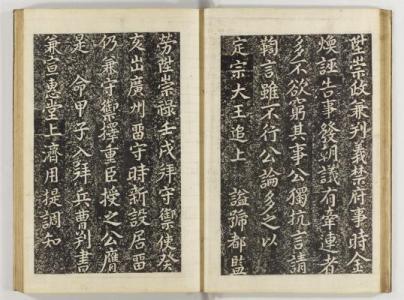 陞崇政兼判義禁府事時金
煥誣告事發朝議有牽連者
多不欲窮其事公獨抗言請
鞫言雖不行公論多之以
定宗大王追上　謚號都監
勞陞崇祿壬戌拜守禦使癸
亥出廣州畱守時新設居畱
仍兼守禦擇重臣授之公膺
是　命甲子入拜兵曹判書
兼宣惠堂上濟用提調知